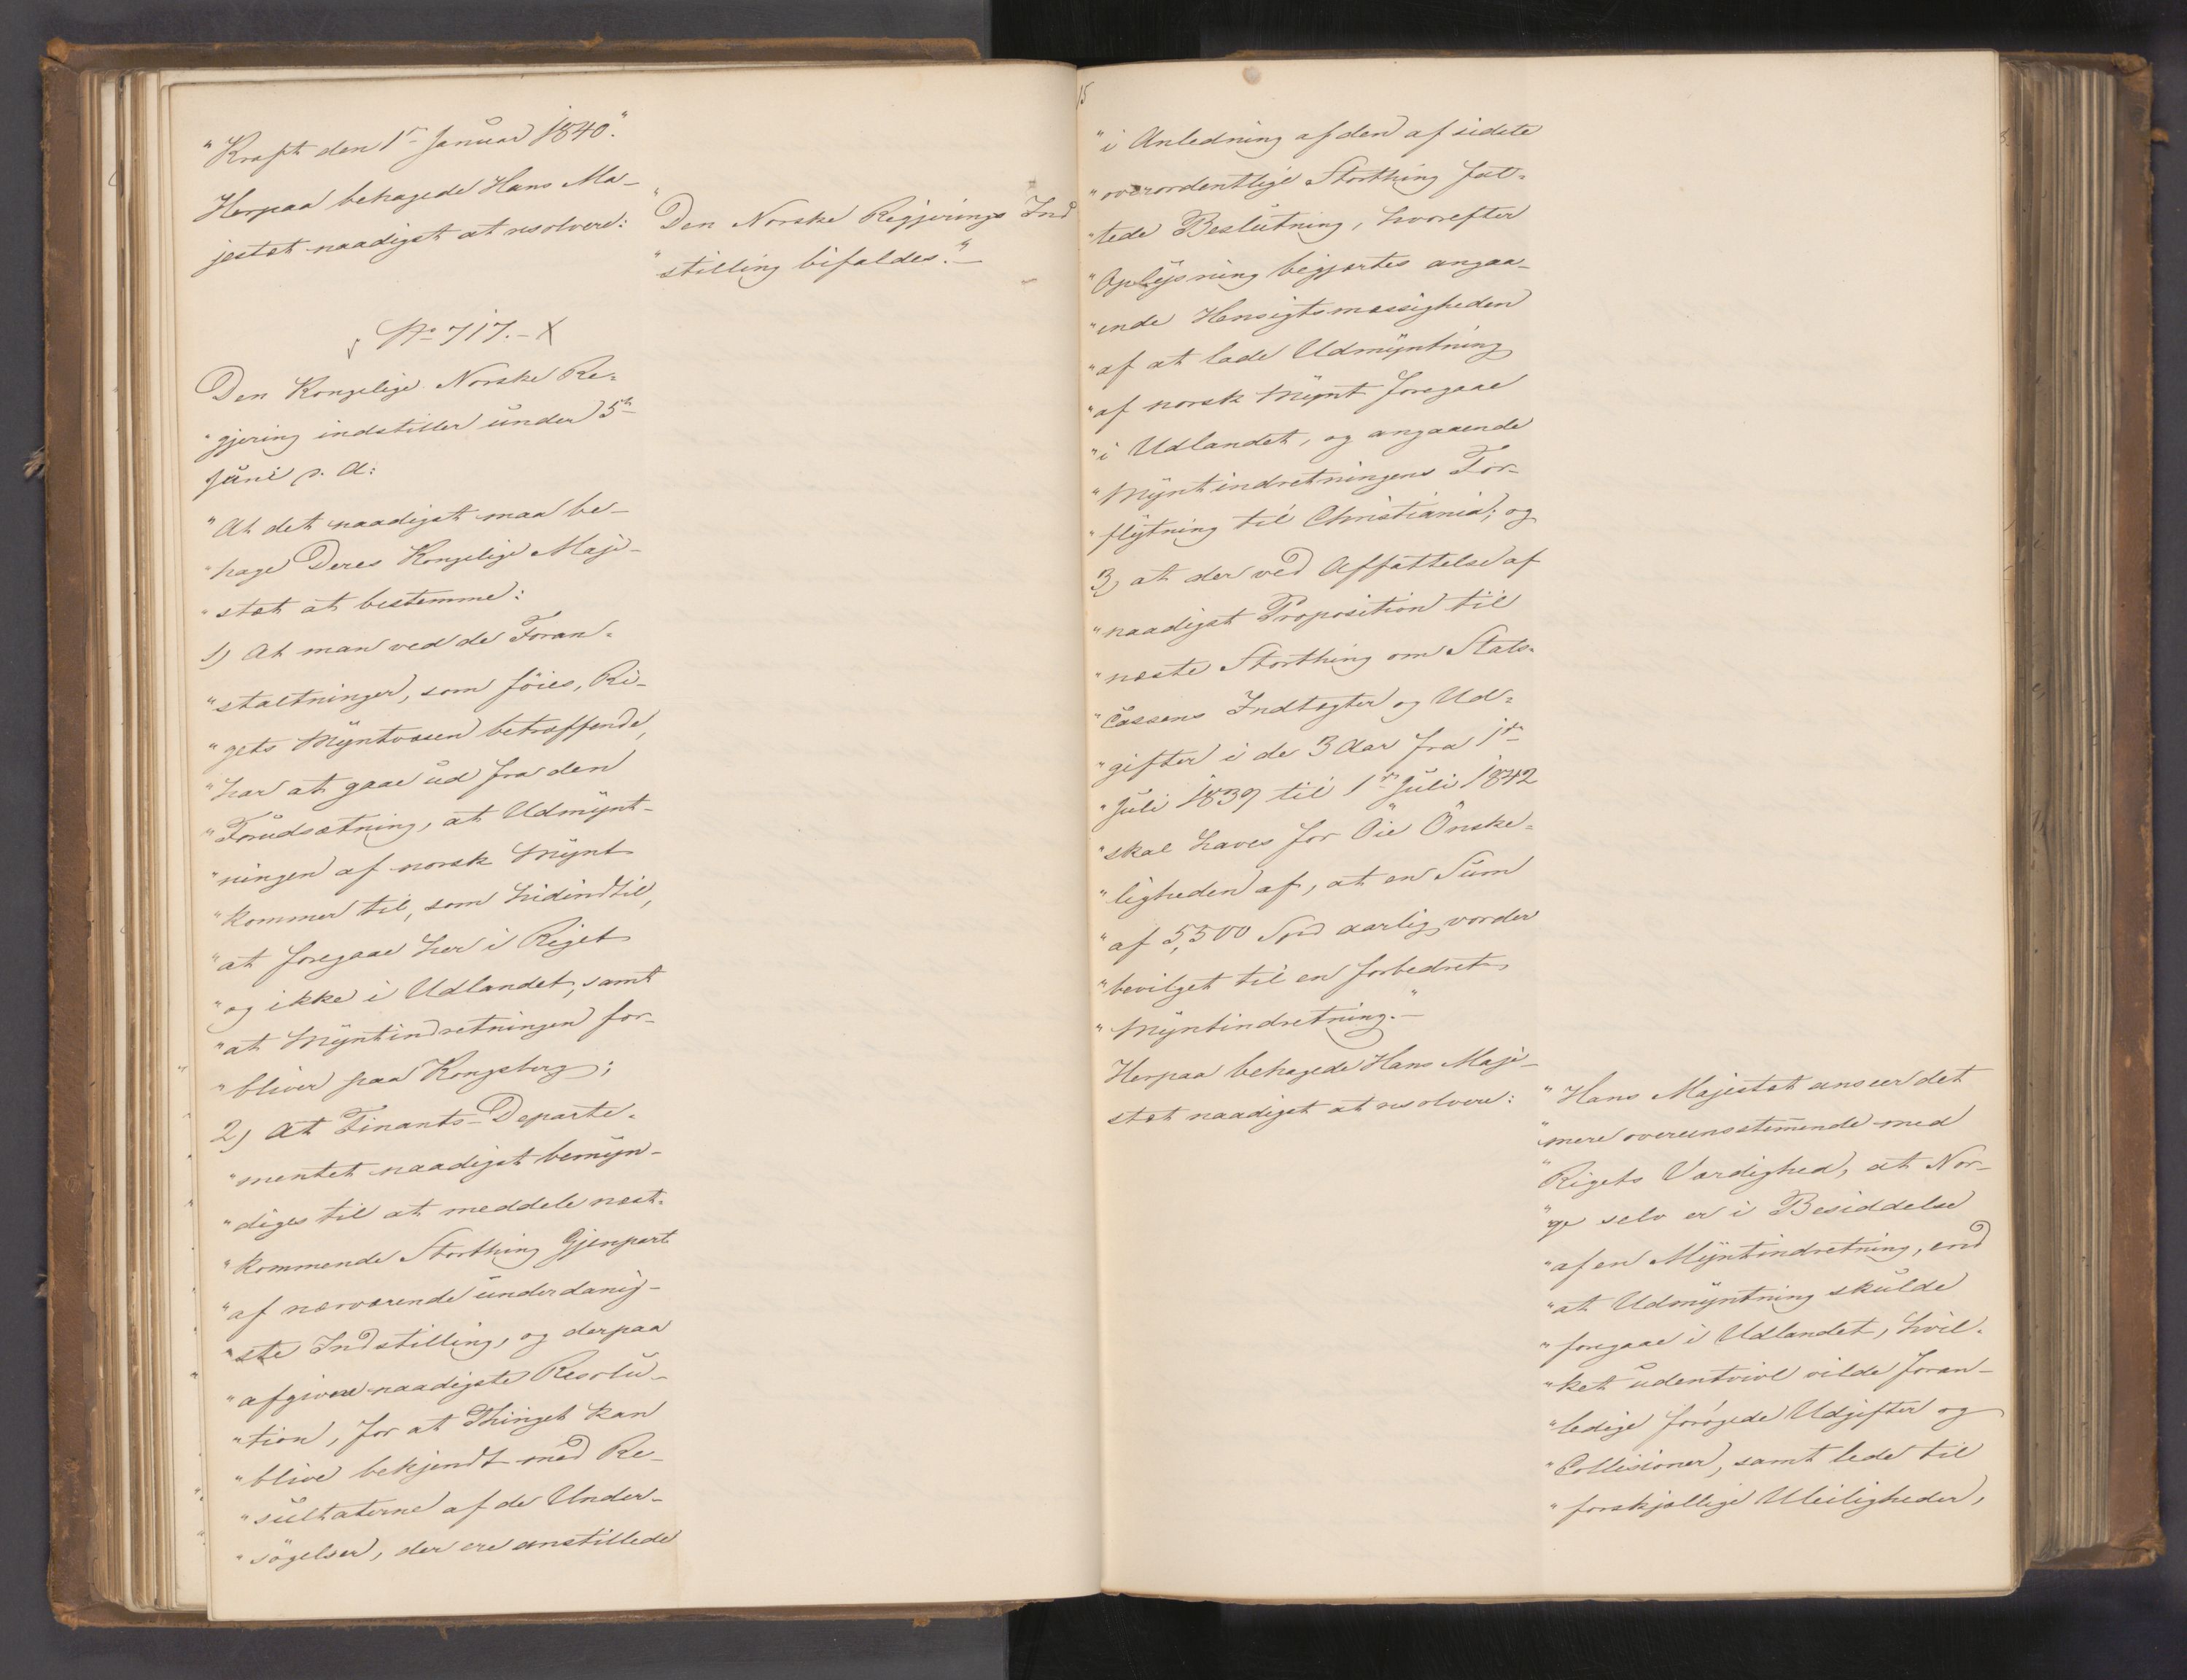 "Kraft den 1ste Januar 1840."
Herpaa behagede Hans Ma-
jestæt naadigst at resolvere:
"Den Norske Regjerings Ind
"stilling bifaldes."-
No 717.- X
Den Kongelige Norske Re-
"gjering indstiller under 5te
Juni s. A:
"At det naadigst maa be-
"hage Deres Kongelige Maje-
"stæt at bestemme:
1) At man ved de Foran-
"staltninger, som föies, Ri-
"gets Myntvæsen betræffende,
"har at gaae ud fra den
"Forudsætning, at Udmynt-
"ningen af norsk Mynt
"kommer til, som hidindtil,
"at foregaae her i Riget
"og ikke i Udlandet, samt
"at Myntindretningen for-
"bliver paa Kongsberg;
2) At Finants-Departe-
"mentet naadigst bemyn-
"diges til at meddele næst-
"kommende Storthing Gjenpart
"af nærværende underdanig-
"ste Indstilling, og derpaa
"afgivne naadigste Resolu-
"tion, for at Thinget kan
"blive bekjendt med Re-
"sultaterne af de Under-
"sögelser, der ere anstillede
15
"i Anledning af den af sidste
"overordentlige Storthing fat-
"tede Beslutning, hvorefter
"Oplysning begjærtes angaa-
"ende Hensigtsmæssigheden
"af at lade Udmyntning
"af norsk Mynt foregaae
"i Udlandet, og angaaende
"Myntindretningens For-
"flytning til Christiania; og
3) at der ved Affattelse af
"naadigst Proposition til
"næste Storthing om Stats-
"Cassens Indtægter og Ud-
"gifter i de 3 Aar fra 1ste
"Juli 1839 til 1ste Juli 1842
"skal haves for Öie Önske-
"ligheden af, at en Sum
"af 5,500 Spd aarlig vorder
"bevilget til en forbedret
"Myntindretning."-
Herpaa behagede Hans Maje-
stæt naadigst at resolvere:
"Hans Majestæt anseer det
"mere overeensstemmende med
"Rigets Værdighed, at Nor-
"ge selv er i Besiddelse
"af en Myntindretning, end
"at Udmyntning skulde
"foregaae i Udlandet, hvil-
"ket udentvivl vilde foran-
"ledige forögede Udgifter og
"Collisioner, samt lede til
"forskjællige Uleiligheder,